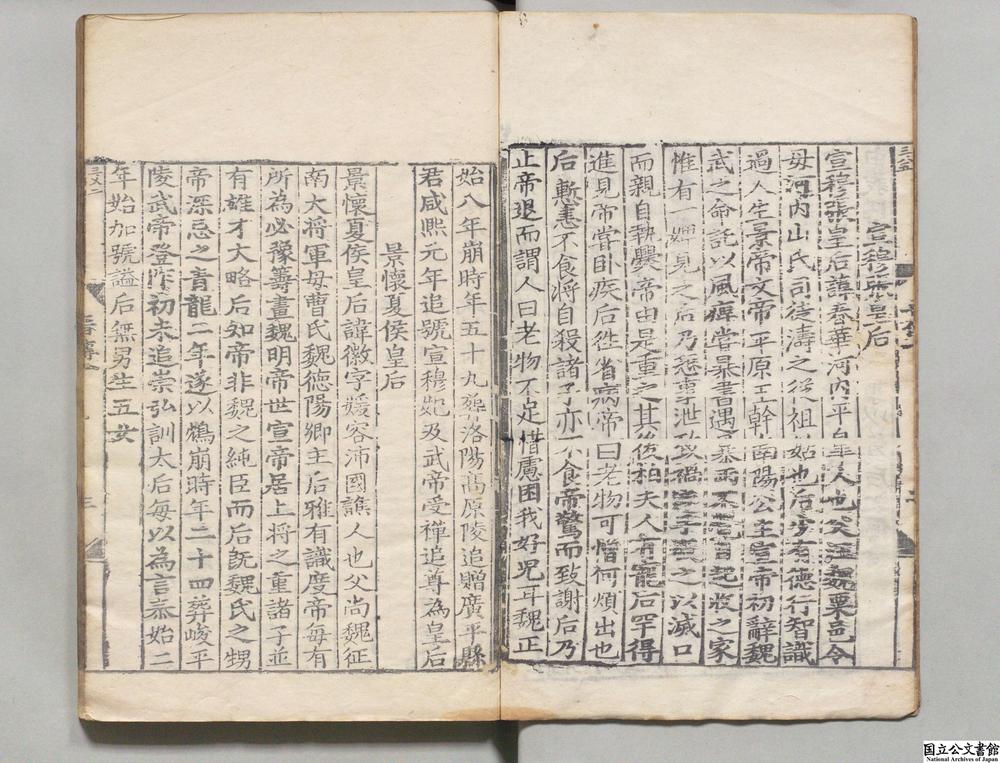 宣穆張皇后
宣穆張皇后諱春華河內平皐人也父汪魏粟邑令
母河內山氏司徒濤之從祖姑也后少有德行智識
過人生景帝文帝平原王幹南陽公主宣帝初辭魏
武之命託以風痺嘗暴書遇暴雨不覺自起收之家
惟有一婢見之后乃恐事泄致禍手殺之以滅口
而親自執爨帝由是重之其後柏夫人有寵后罕得
進見帝嘗卧疾后往省病帝曰老物可憎何煩出也
后慙恚不食將自殺諸子亦不食帝驚而致謝后乃
止帝退而謂人曰老物不足惜慮困我好兒耳魏正
始八年崩時年五十九葬洛陽高原陵追贈廣平縣
君咸熙元年追號宣穆妃及武帝受禪追尊為皇后
景懷夏侯皇后
景懷夏侯皇后諱徽字媛容沛國譙人也父尚魏征
南大將軍母曹氏魏德陽卿主后雅有識度帝每有
所為必豫籌畫魏明帝世宣帝居上將之重諸子並
有雄才大略后知帝非魏之純臣而后旣魏氏之甥
帝深忌之青龍二年遂以鴆崩時年二十四葬峻平
陵武帝登阼初未追崇弘訓太后每以為言泰始二
年始加號謚后無男生五女
国立公文書館
National Archives of Japan